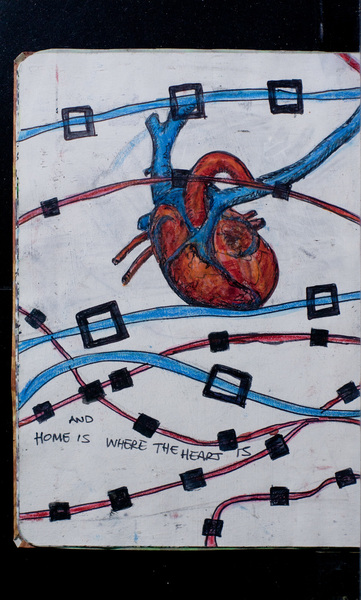 AND
HOME IS WHERE THE HEART IS